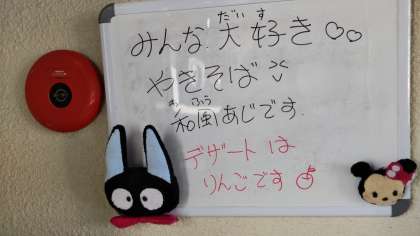 みんな大好き♡♡
だいす
やきそば
わふう
和風あじです.
デザートは
りんごです